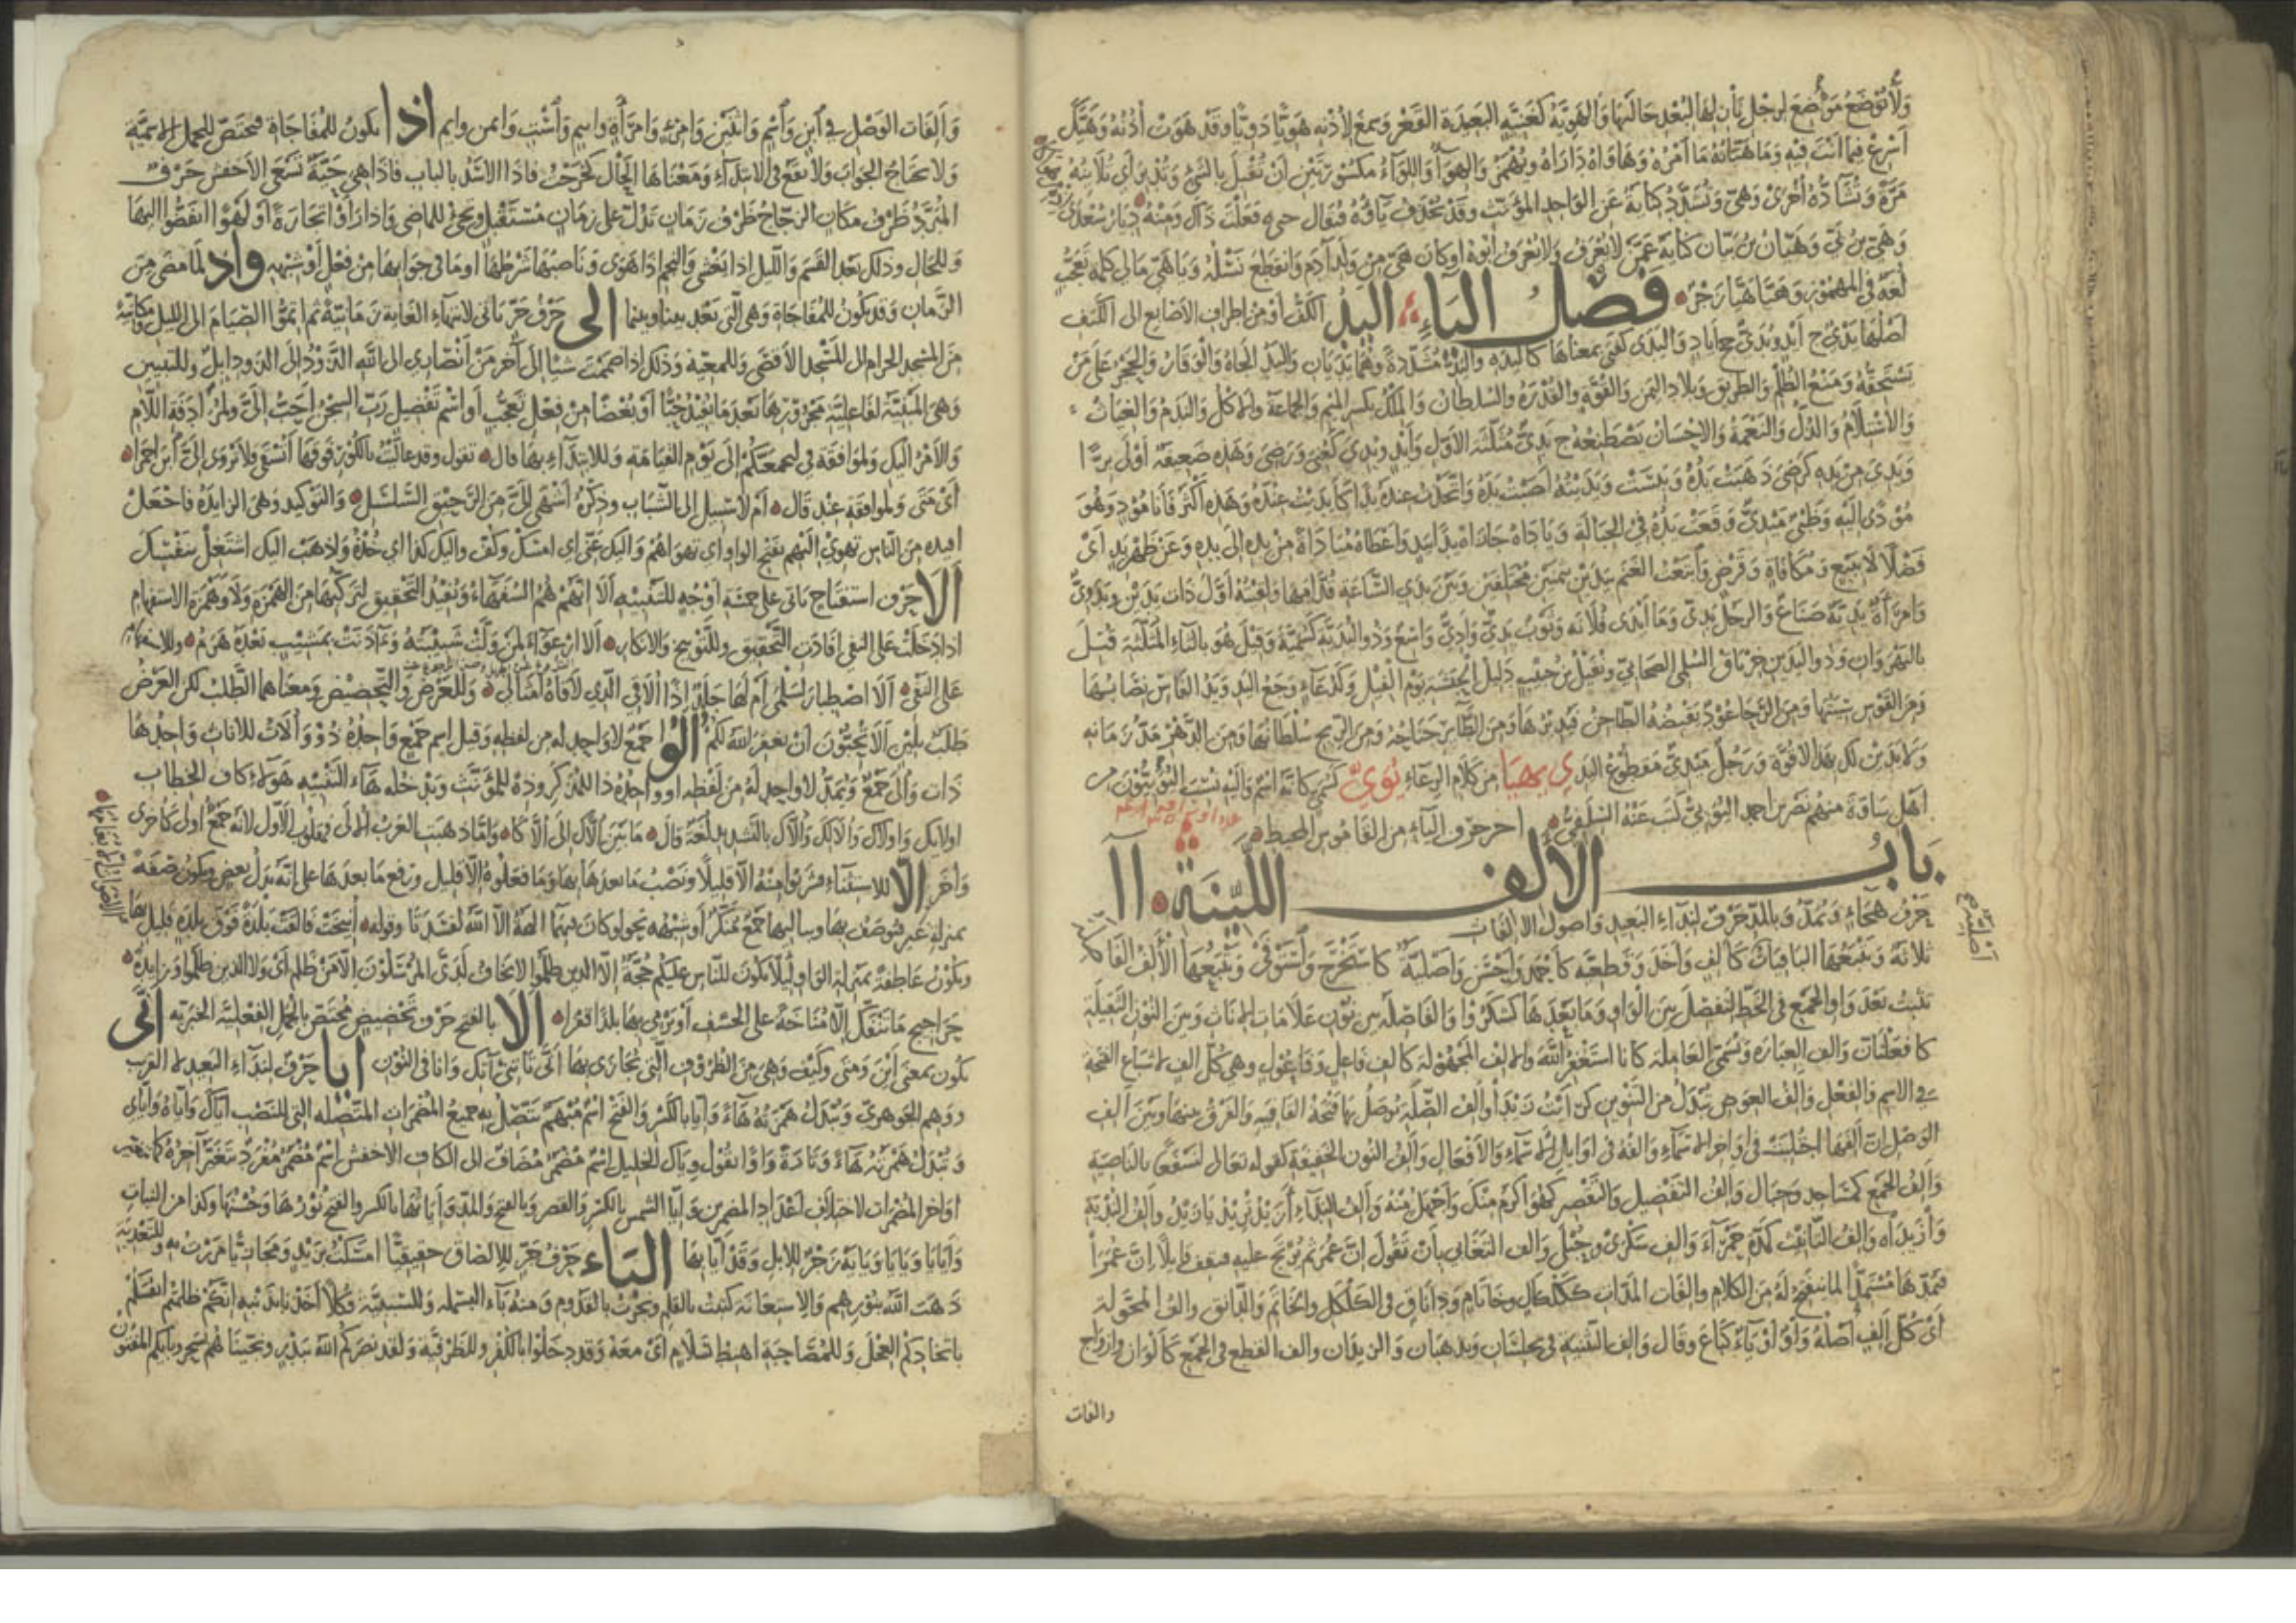 ولا توضع موضع لرجل بأن لها البعد حالتها والهوية كغنية البعيدة القعر وسمع لأذنه هويا دويا وقد هوت أذنه وهيّك
أسرع فيما أنت فيه وما هيانه ما أمره وهاواه داراه ويهمز والهواء واللواء مكسورتين أن تقبل بالشيء وتدبر أي تلاينه
مرة وتشاده أخرى وهي وتشدد كناية عن الواحد المؤنث وقد تحذف ياؤه فيقال حتاه فعلت ذاك ومنه ديار سعدى
وهي بن بي وهيان بن بيان كناية عمن لا يعرف ولا يعرف أبوه أو كان هي من ولد آدم وانقطع نسله ويا هي مالي كلمة تعجب
لغة في المهموز وهيا هيا زجر فصل الياء اليد الكف أو من أطراف الأصابع إلى الكتف
أصلها يدي ج أيد ويدي جج أياد واليدى كفتى بمعناها كاليده واليد مشددة وهما يديان واليد الجاه والوقار والحجر على من
يستحقه ومنع الظلم والطريق وبلاد اليمن والقوة والقدرة والسلطان والملك بكسر الميم والجماعة والأكل والندم والغياث
والاستلام والذل والنعمة والإحسان يصطنعه ج يدي مثلثة الأول وأيد ويدي كعني ورضي وهذه ضعيفة أولى برا
ويدي من يده كرضي ذهبت يده ويبست ويديته أصبت يده واتخذت عنده يدا كأيديت عنده وهذه أكثر فأنا مود وهو
مودى إليه وظبي ميدي وقعت يده في الحبالة وياداه جازاه يدا بيد وأعطاه مياداة من يده إلى يده وعن ظهر يد أي
فضلا لا ببيع ومكافاة وقرض وابتعت الغنم بيدين بثمنين مختلفين وبين يدي الساعة قدامها ولقيته أول ذات يدين ويدوي
وامرأة يدية صناع والرجل يدي وما أيدى فلانة وثوب يدي وأدي واسع وذو اليدية كسمية وقيل هو بالثاء المثلثة قتل
بالنهروان وذو اليدين خرباق السلمي الصحابي ونفيل بن حبيب دليل الحبشة يوم الفيل وكدعاء وجع اليد ويد الفأس نصابها
ومن القوس سيتها ومن الرحا عود يقبضه الطاحن فيديرها ومن الطائر جناحه ومن الريح سلطانها ومن الدهر مد زمانه
ولا يدين لك بهذا لا قوة ورجل ميدي مقطوع اليد ي يهيا من كلام الرعاء يوي كسمي كأنه اسم وإليه نسب اليوييون من
أهل ساقة منهم نصر بن أحمد اليويي كتب عنه السلفي آخر حرف الياء من القاموس المحيط
باب الألف اللينة آ
حرف هجاء ويمد وبالمد حرف لنداء البعيد وأصول الألفات
ثلاثة ويتبعها الباقيات كألف وأخذ وقطعية كأحمد وأحسن وأصلية كاستخرج واستوفى ويتبعها الألف الفاصلة
تثبت بعد واو الجمع في الخط لتفصل بين الواو وما بعدها كشكروا والفاصلة بين نون علامات الإناث وبين النون الثقيلة
كافعلنان وألف العبارة وتسمى العاملة كأنا أستغفر الله والألف المجهولة كألف فاعل وفاعول وهي كل ألف لإشباع الفتحة
في الاسم والفعل وألف العوض تبدل من التنوين كرأيت زيدا وألف الصلة توصل بها فتحة القافية والفرق بينها وبين ألف
الوصل أن ألفها اجتلبت في أواخر الأسماء وألفه في أوائل الأسماء والأفعال وألف النون الخفيفة كقوله تعالى لنسفعا بالناصية
وألف الجمع كمساجد وجبال وألف التفضيل والتقصير كهو أكرم منك وأجهل منه وألف النداء أزيد تريد يا زيد وألف الندبة
وازيداه وألف التأنيث كمدة حمراء وألف سكرى وحبلى وألف التعايي بأن تقول إن عمر ثم يرتج عليه فيقف قائلا إن عمرا
فيمدها مستمدا لما ينفتح له من الكلام وألفات المدات ككلكال وخاتام وداناق في الكلكل والخاتم والدانق وألف المحولة
أي كل ألف أصله واو أو ياء كباع وقال وألف التثنية في يجلسان ويذهبان والزيدان وألف القطع في الجمع كألوان وأزواج
والفات
وألفات الوصل في ابن وابنم واثنين وامرئ وامرأة واسم واست وايمن وايم إذا تكون للمفاجأة فتختص بالجمل الاسمية
ولا تحتاج لجواب ولا تقع في الابتداء ومعناها الحال كخرجت فإذا الأسد بالباب فإذا هي حية تسعى الأخفش حرف
المبرد ظرف مكان الزجاج ظرف زمان تدل على زمان مستقبل وتجيء للماضي وإذا رأوا تجارة أو لهوا انفضوا إليها
وللحال وذلك بعد القسم والليل إذا يغشى والنجم إذا هوى وناصبها شرطها أو ما في جوابها من فعل أو شبهه وإذ لما مضى من
الزمان وقد تكون للمفاجأة وهي التي بعد بينا وبينما إلى حرف جر تأتي لانتهاء الغاية زمانية ثم أتموا الصيام إلى الليل ومكانية
من المسجد الحرام إلى المسجد الأقصى وللمعية وذلك إذا ضممت شيئا إلى آخر من أنصاري إلى الله الذود إلى الذود إبل وللتبيين
وهي المبينة لفاعلية مجرورها بعد ما يفيد حبا أو بغضا من فعل تعجب أو اسم تفضيل رب السجن أحب إلي ولمرادفة اللام
والأمر إليك ولموافقة في ليجمعنكم إلى يوم القيامة وللابتداء بها قال تقول وقد عاليت بالكور فوقها أيسقى ولا يروى إلي ابن أحمرا
أي مني ولموافقة عند قال أم لا سبيل إلى الشباب وذكره أشهى إلي من الرحيق السلسل والتوكيد وهي الزائدة فاجعل
أفئدة من الناس تهوى إليهم بفتح الواو أي تهواهم وإليك عني أي أمسك وكف وإليك كذا أي خذه واذهب إليك اشتغل بنفسك
ألا حرف استفتاح تأتي على خمسة أوجه للتنبيه ألا إنهم هم السفهاء وتفيد التحقيق لتركبها من الهمزة ولا وهمزة الاستفهام
إذا دخلت على النفي أفادت التحقيق وللتوبيخ والإنكار ألا ارعواء لمن ولت شبيبته وآذنت بمشيب بعده هرم وللاستفهام
على النفي ألا اصطبار لسلمى أم لها جلد إذا ألاقي الذي لاقاه أمثالي وللعرض والتحضيض ومعناهما الطلب لكن العرض
طلب بلين ألا تحبون أن يغفر الله لكم ألو جمع لا واحد له من لفظه وقيل اسم جمع واحده ذو وألات للإناث واحدها
ذات وألى جمع ويمد لا واحد له من لفظه أو واحده ذا للمذكر وذه للمؤنث وتدخله هاء التنبيه هؤلاء وكاف الخطاب
أولئك وأولاك وألالك وألاك بالتشديد لغة قال ما بين ألاك إلى ألاكا وأما ذهبت العرب الألى فمقلوب الأول لأنه جمع أولى كأخرى
وأخر إلا للاستثناء فشربوا منه إلا قليلا ونصب ما بعدها بها وما فعلوه إلا قليل ورفع ما بعدها على أنه بدل بعض وتكون صفة
بمنزلة غير فيوصف بها وبتاليها جمع منكر أو شبهه نحو لو كان فيهما آلهة إلا الله لفسدتا وقوله أنيخت فألقت بلدة فوق بلدة قليل بها
وتكون عاطفة بمنزلة الواو لئلا يكون للناس عليكم حجة إلا الذين ظلموا لا يخاف لدي المرسلون إلا من ظلم أي ولا الذين ظلموا وزائدة
حراجيج ما تنفك إلا مناخة على الخسف أو نرمي بها بلدا قفرا ألا بالفتح حرف تحضيض مختص بالجمل الفعلية الخبرية أنى
تكون بمعنى أين ومتى وكيف وهي من الظروف التي يجازى بها أنى تأتني آتك وأنا في النون أيا حرف لنداء البعيد لا القريب
ووهم الجوهري وتبدل همزته هاء وإيا بالكسر والفتح اسم مبهم تتصل به جميع المضمرات المتصلة التي للنصب إياك وإياه وإياي
وتبدل همزته هاء وتارة واوا تقول وياك الخليل اسم مضمر مضاف إلى الكاف الأخفش اسم مضمر مفرد يتغير آخره كما يتغير
أواخر المضمرات لاختلاف أعداد المضمرين وإيا الشمس بالكسر والقصر وبالفتح والمد وإياتها بالكسر والفتح نورها وحسنها وكذا من النبات
وأيايا ويايا ويايه زجر للإبل وقد أيا بها الباء حرف جر للإلصاق حقيقيا أمسكت بزيد ومجازيا مررت به وللتعدية
ذهب الله بنورهم وللاستعانة كتبت بالقلم ونجرت بالقدوم ومنه باء البسملة وللسببية فكلا أخذنا بذنبه إنكم ظلمتم أنفسكم
باتخاذكم العجل وللمصاحبة اهبط بسلام أي معه وقد دخلوا بالكفر وللظرفية ولقد نصركم الله ببدر ونجيناهم بسحر وبأيكم المفتون